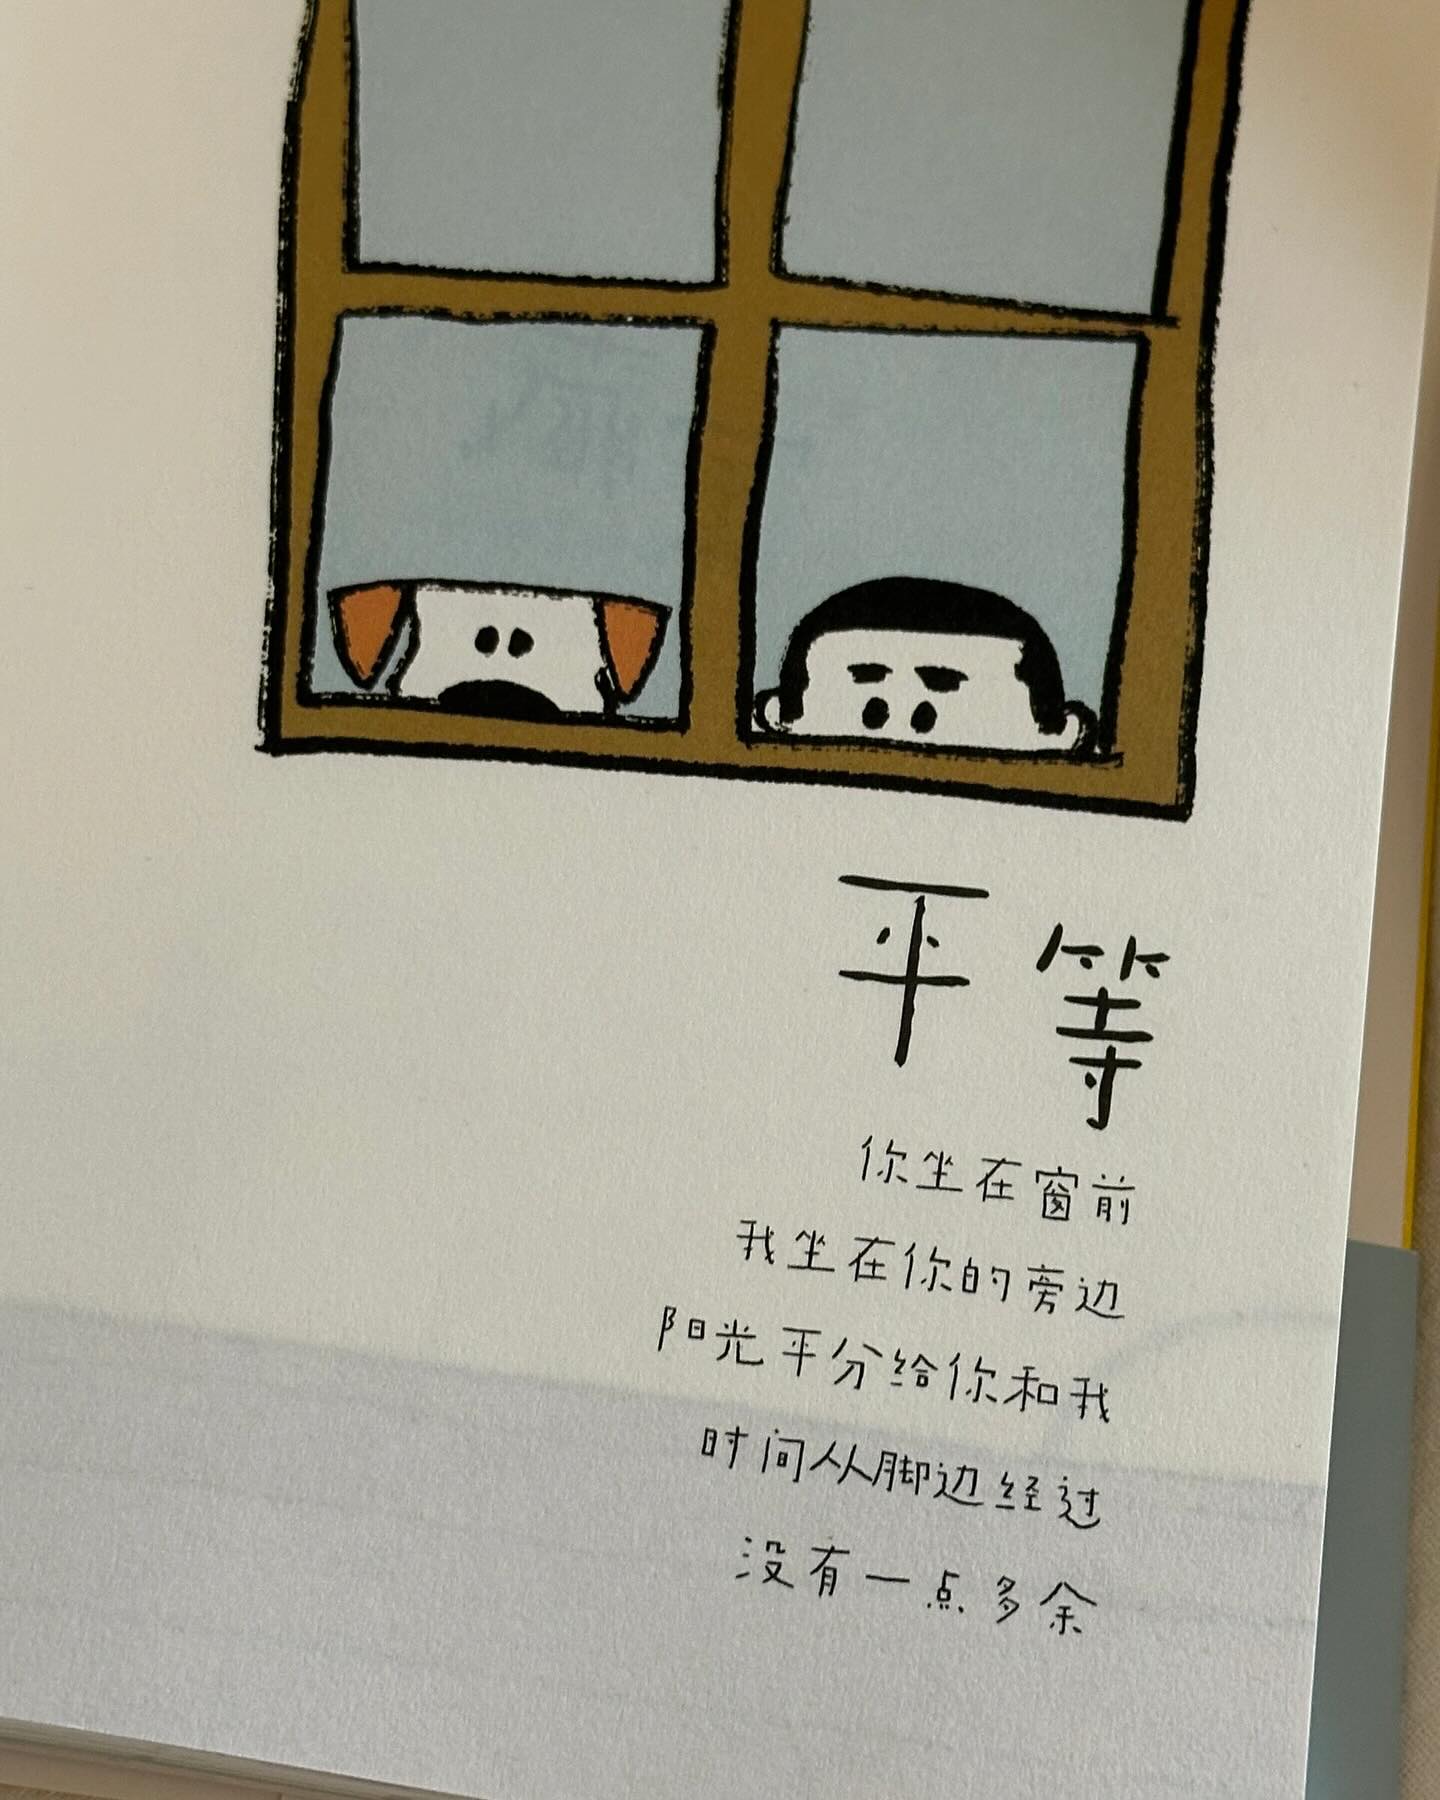 平等
你坐在窗前
我坐在你的旁边
阳光平分给你和我
时间从脚边经过
没有一点多余